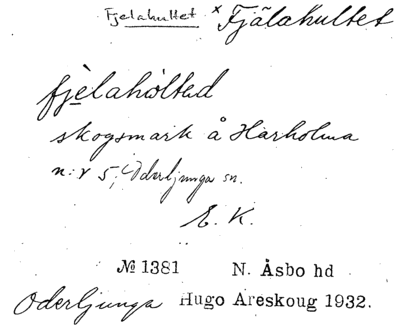 Fjelakultet × Fjälakultet
fjèlahòlted
skogsmark å Harholma
n:r 5, Oderljunga sn.
E. K.
№ 1381 N. Åsbo hd
Oderljunga Hugo Areskoug 1932.